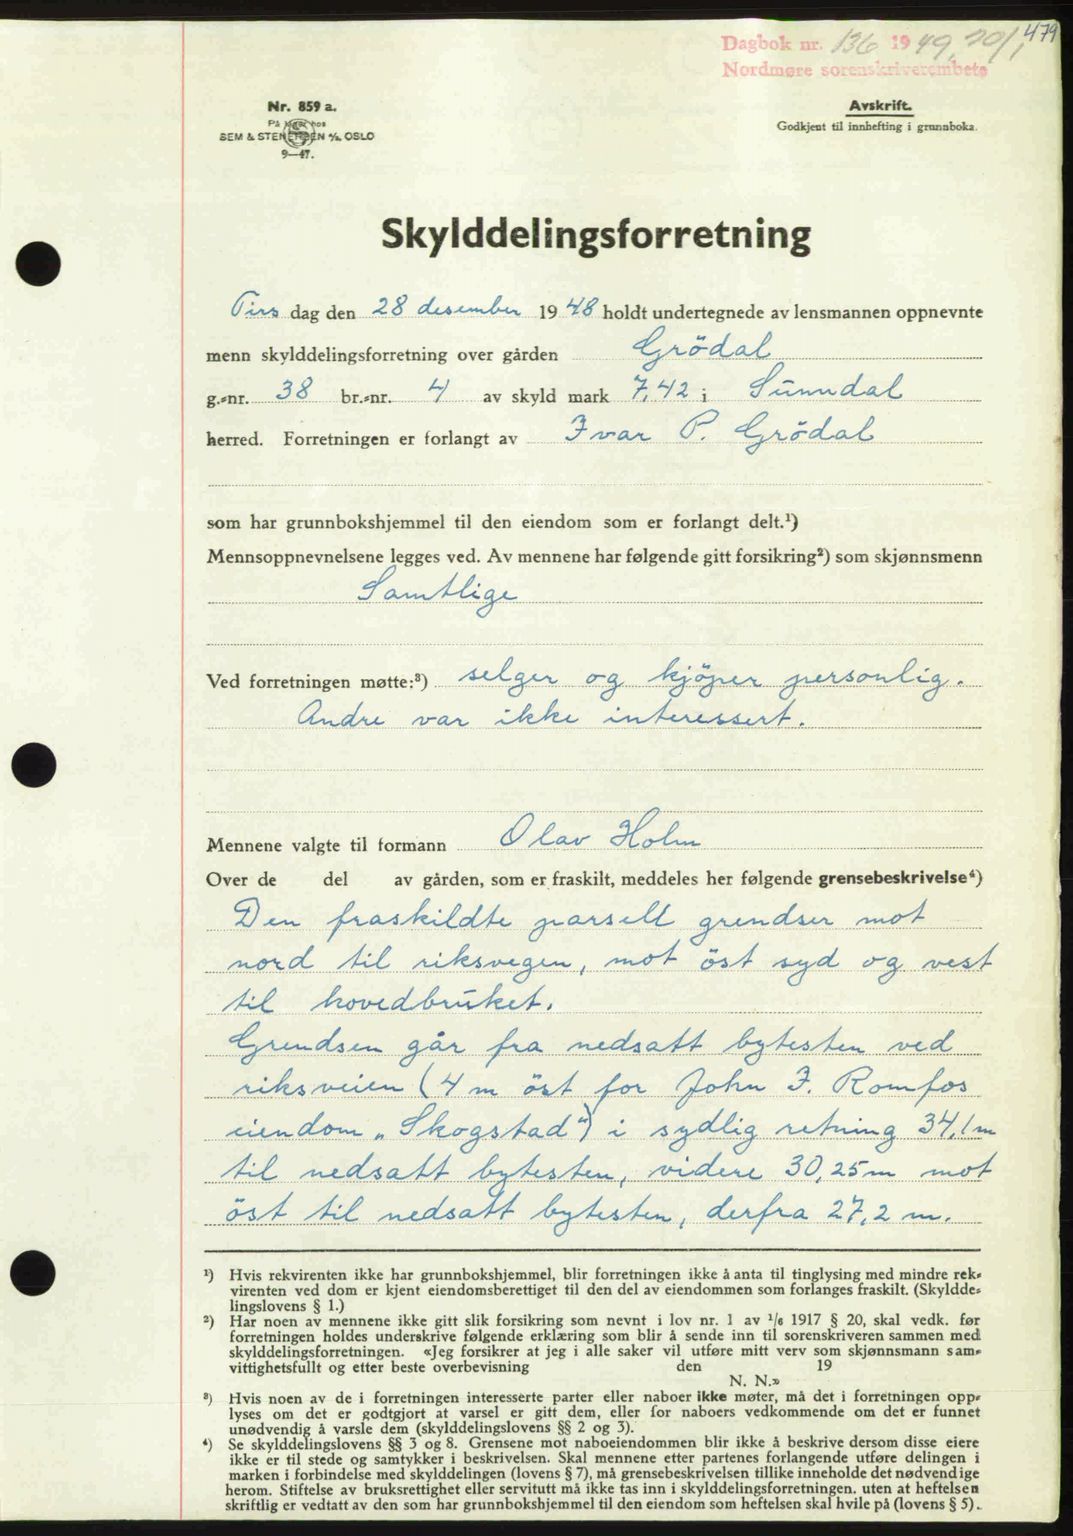 479
Dagbok nr. 136 1949, 20/1
Nordmøre sorenskriverembete
Nr. 859 a.
På lager hos
SEM & STENERSEN A/S. OSLO
9—47.
Avskrift.
Godkjent til innhefting i grunnboka.
Skylddelingsforretning
Tirs dag den 28 desember 1948 holdt undertegnede av lensmannen oppnevnte
menn skylddelingsforretning over gården Grödal
g.-nr. 38 br.-nr. 4 av skyld mark 7,42 i Sunndal
herred. Forretningen er forlangt av Ivar P. Grödal
som har grunnbokshjemmel til den eiendom som er forlangt delt.¹)
Mennsoppnevnelsene legges ved. Av mennene har følgende gitt forsikring²) som skjønnsmenn
Samtlige
Ved forretningen møtte:³) selger og kjöper personlig.
Andre var ikke interessert.
Mennene valgte til formann Olav Holm
Over de del av gården, som er fraskilt, meddeles her følgende grensebeskrivelse⁴)
Den fraskildte parsell grendser mot
nord til riksvegen, mot öst syd og vest
til hovedbruket.
Grendsen går fra nedsatt bytesten ved
riksveien (4 m öst for John I. Romfos
eiendom „Skogstad") i sydlig retning 34,1 m
til nedsatt bytesten, videre 30,25 m mot
öst til nedsatt bytesten, derfra 27,2 m.
¹) Hvis rekvirenten ikke har grunnbokshjemmel, blir forretningen ikke å anta til tinglysing med mindre rek-
virenten ved dom er kjent eiendomsberettiget til den del av eiendommen som forlanges fraskilt. (Skyldde-
lingslovens § 1.)
²) Har noen av mennene ikke gitt slik forsikring som nevnt i lov nr. 1 av 1/6 1917 § 20, skal vedk. før
forretningen holdes underskrive følgende erklæring som blir å sende inn til sorenskriveren sammen med
skylddelingsforretningen. «Jeg forsikrer at jeg i alle saker vil utføre mitt verv som skjønnsmann sam-
vittighetsfullt og etter beste overbevisning den 19
N. N.»
³) Hvis noen av de i forretningen interesserte parter eller naboer ikke møter, må det i forretningen opp-
lyses om det er godtgjort at varsel er gitt dem, eller for naboers vedkommende om det er funnet
unødvendig å varsle dem (skylddelingslovens §§ 2 og 3).
⁴) Se skylddelingslovens §§ 3 og 8. Grensene mot naboeiendommen blir ikke å beskrive dersom disse eiere
ikke er til stede og samtykker i beskrivelsen. Skal mennene etter partenes forlangende utføre delingen i
marken i forbindelse med skylddelingen (lovens § 7), må grensebeskrivelsen tillike inneholde det nødvendige
herom. Stiftelse av bruksrettighet eller servitutt må ikke tas inn i skylddelingsforretningen, uten at heftelsen
skriftlig er vedtatt av den som har grunnbokshjemmel til den eiendom som heftelsen skal hvile på (lovens § 5).